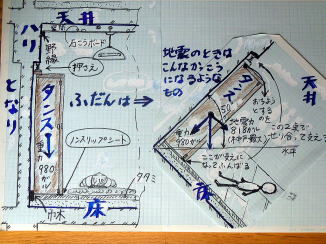 天井
ハリ
となり
野縁
石こうボード
押さえ
タンス
重力
980ガル
ノンスリップシート
タタミ
巾木
床
ふだんは
地震のときは
こんなかっこう
になるような
もの
天井
タンス
おちよう
とする
のを
地震力
818ガル
(神戸最大)
重力
980ガル
この2点で
せり合って支え
水平
ここが支えに
なってふんばる
床